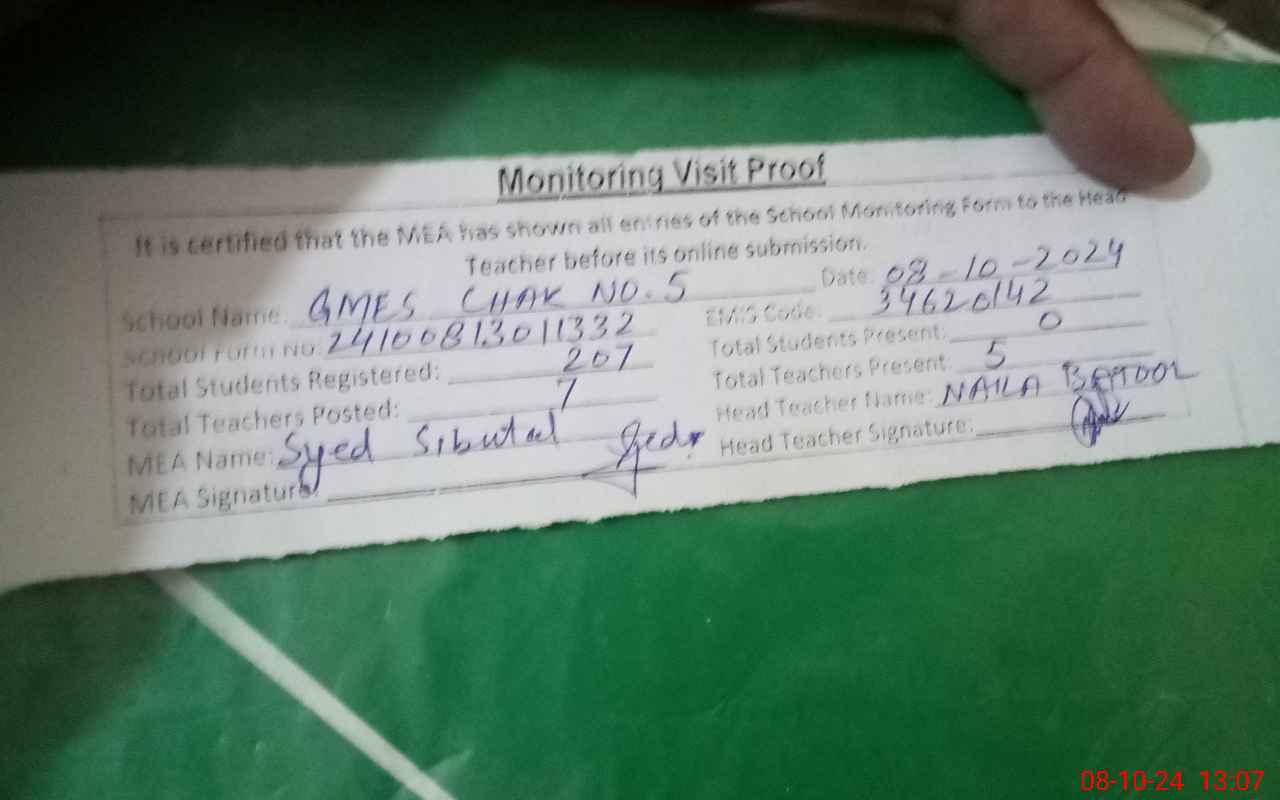 Monitoring Visit Proof
It is certified that the MEA has shown all entries of the School Monitoring Form to the Head
Teacher before its online submission.
School Name: GMES CHAK NO. 5 Date: 08-10-2024
School Form No: 2410081301332 EMIS Code: 34620142
Total Students Registered: 207 Total Students Present: 0
Total Teachers Posted: 7 Total Teachers Present: 5
MEA Name: Syed Sibutal Head Teacher Name: NAILA BATOOL
MEA Signature: Head Teacher Signature:
08-10-24 13:07